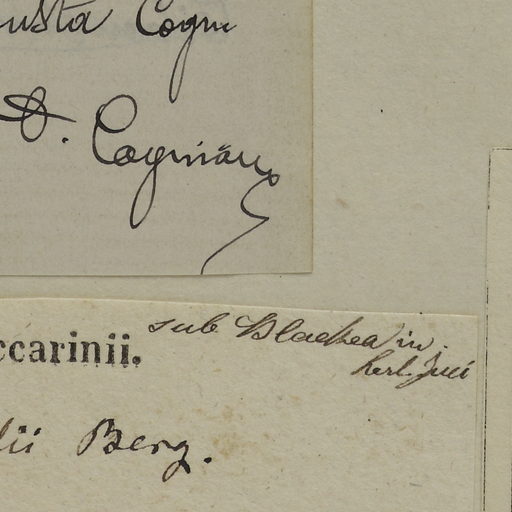 usta Cogn
D. Cogniaux
ccarinii.
sub Blackea in
herb. sui
lii Berg.